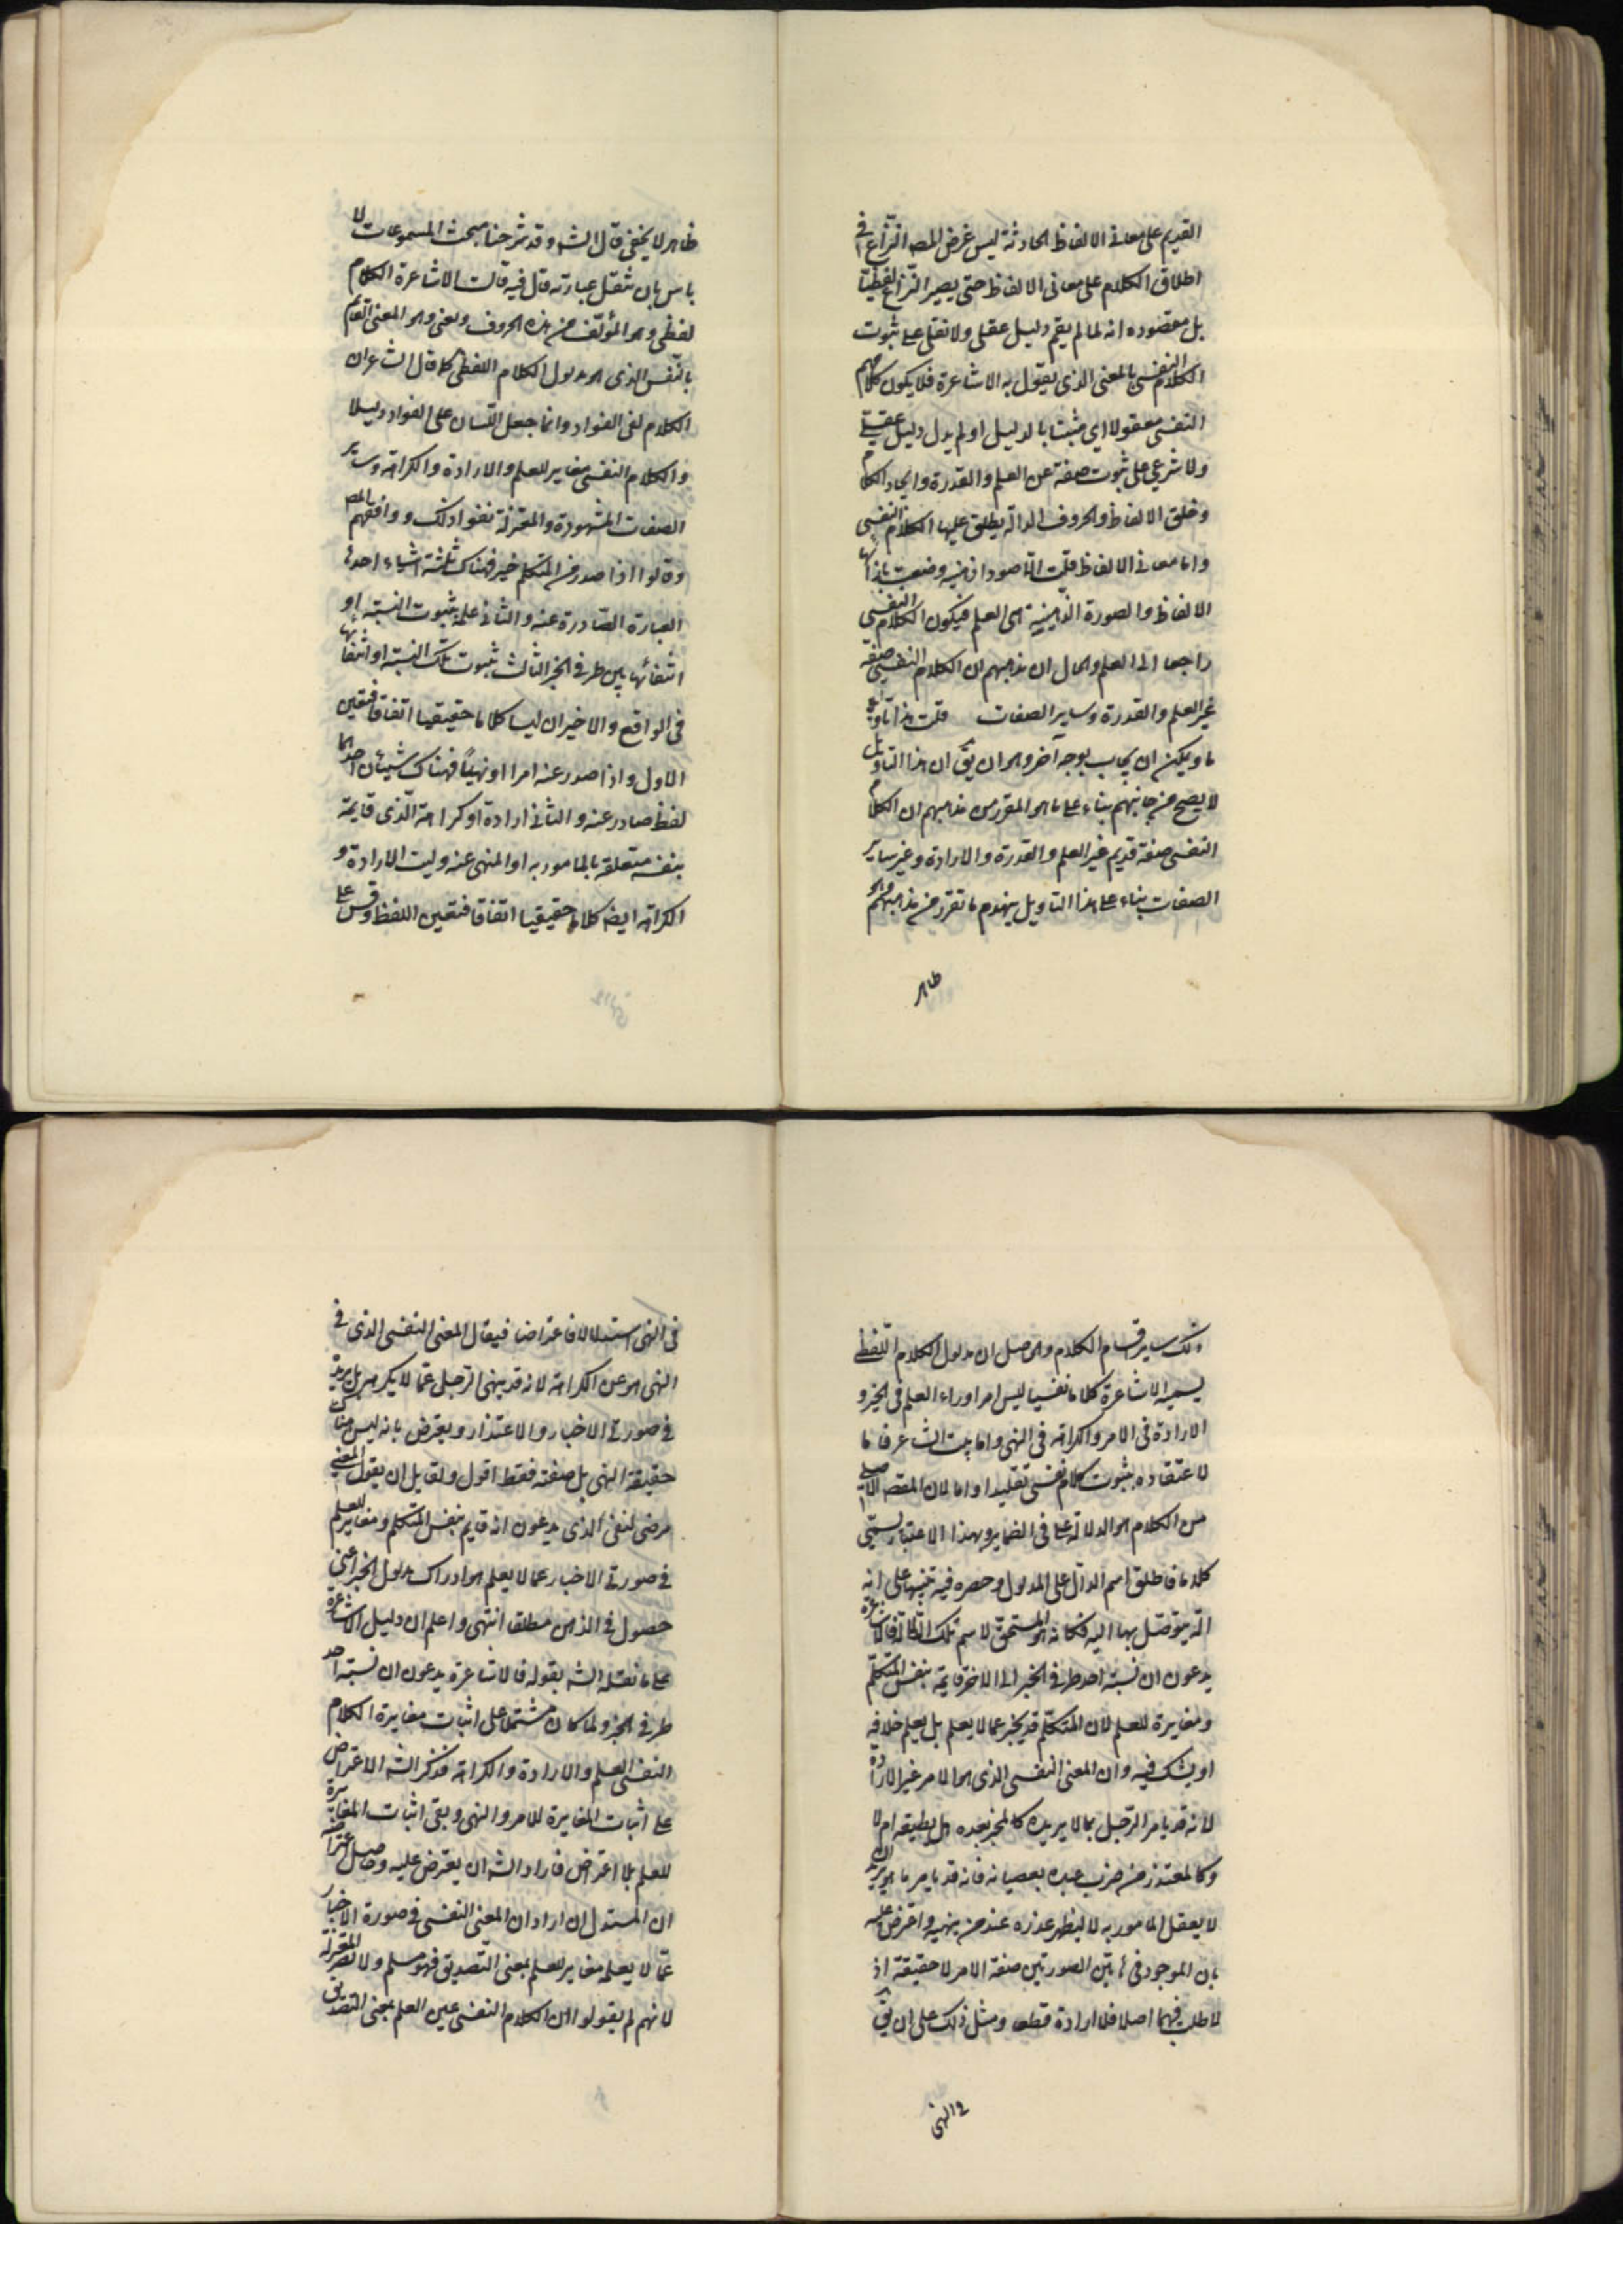 القديم على معاني الالفاظ الحادثة ليس غرض المصه النزاع في
اطلاق الكلام على معاني الالفاظ حتى يصير النزاع لفظيا
بل مقصوده انه لما لم يقم دليل عقلى ولا نقلى على ثبوت
الكلام النفسى بالمعنى الذى يقول به الاشاعرة فلا يكون كلامهم
النفسى معقولا اى مثبتا بالدليل او لم يدل دليل عقلى
ولا شرعى على ثبوت صفة عن العلم والقدرة وايجاد الكلام
وخلق الالفاظ والحروف الدالة يطلق عليها الكلام النفسى
واما معانى الالفاظ قلت انها صور اذهنية وضعت بازائها
الالفاظ والصورة الذهنية هى العلم فيكون الكلام النفسى
راجعا الى العلم والحال ان مذهبهم ان الكلام النفسى صفة
غير العلم والقدرة وساير الصفات قلت هذا تاويل
ما ويمكن ان يجاب بوجه آخر وهو ان يق ان هذا التاويل
لا يصح من جانبهم بناء على ما هو المقرر من مذهبهم ان الكلام
النفسى صفة قديم غير العلم والقدرة والارادة وغير ساير
الصفات بناء على هذا التاويل ينهدم ما تقرر من مذهبهم وهو
ظاهر
ظاهر لا يخفى قال الشه وقد شرحنا مبحث المسموعات لا
باس بان ننقل عبارته قال فيه قالت الاشاعرة الكلام
لفظى وهو المؤلف من هذه الحروف ومعنى وهو المعنى القايم
بالنفس الذى هو مدلول الكلام اللفظى كما قال الشاعر ان
الكلام لفى الفؤاد وانما جعل اللسان على الفواد دليلا
والكلام النفسى مغاير للعلم والارادة والكراهة وساير
الصفات المشهورة والمعتزلة نفوا ذلك ووافقهم المصه
وقالوا اذا صدر من المتكلم خبر فهناك ثلثة اشياء احدها
العبارة الصادرة عنه والثانى علمه بثبوت النسبة او
انتفائها بين طرفى الخبر الثالث ثبوت تلك النسبة او انتفائها
فى الواقع والاخيران ليسا كلاما حقيقيا اتفاقا فتعين
الاول واذا صدر عنه امرا او نهيا فهناك شيئان احدهما
لفظ صادر عنه والثانى ارادة او كراهة الذى قايمة
بنفسه متعلقة بالمامور به او المنهى عنه وليت الارادة و
الكراهة ايضه كلاما حقيقيا اتفاقا فتعين اللفظ وقس على
ذلك ساير اقسام الكلام والحاصل ان مدلول الكلام اللفظى
يسميه الاشاعرة كلاما نفسيا ليس امرا وراء العلم فى الخبر و
الارادة فى الامر والكراهة فى النهى واما بيت الشاعر فاما
لاعتقاده بثبوت كلام نفسى تقليدا واما لان المقصه الاصلى
من الكلام هو الدلالة على ما فى الضماير وبهذا الاعتبار يسمى
كلاما فاطلق اسم الدال على المدلول وحصره فيه تنبيها على انه
آلة يتوصل بها اليه فكانه هو المستحق لاسم تلك الآلة فالاشاعرة
يدعون ان نسبة احد طرفى الخبر الى الاخر قايمة بنفس المتكلم
ومغايرة للعلم لان المتكلم قد يخبر عما لا يعلم بل يعلم خلافه
او يشك فيه وان المعنى النفسى الذى هو الامر غير الارادة
لانه قد يامر الرجل بما لا يريده كالمخبر لعبده هل يطيعه ام لا
وكالمعتذر من ضرب عبده بعصيانه فانه قد يامر ما هو يريد ان
لا يفعل المامور به لا ليظهر عذره عند من ينهيه واعترض عليه
بان الموجود فى هاتين الصورتين صيغة الامر لا حقيقة اذ
لا طلب فيهما اصلا فلا ارادة قطعا ومثل ذلك على ان يق
فى النهى
فى النهى استدلالا فاعتراضا فيقال المعنى النفسى الذى فى
النهى هو عين الكراهة لانه قد ينهى الرجل عما لا يكرهه بل يريد
فى صورتى الاخبار والاعتذار ويعترض بانه ليس هناك
حقيقة النهى بل صيغته فقط اقول ولقايل ان يقول المعنى
مرضى لنفى الذى يدعون انه قايم بنفس المتكلم ومغاير للعلم
فى صورتى الاخبار عما لا يعلم هو ادراك مدلول الخبر اعنى
حصول فى الذهن مطلقا انتهى واعلم ان دليل الاشاعرة
على ما نقله الشه بقوله فالاشاعرة يدعون ان نسبة احد
طرفى الخبر ولما كان مشتملا على اثبات مغايرة الكلام
النفسى العلم والارادة والكراهة فذكر الشه الاعتراض
على اثبات المغايرة للامر والنهى وبقى اثبات المغايرة
للعلم بلا اعتراض فاراد الشه ان يعترض عليه وحاصل اعتراضه
ان المستدل ان اراد ان المعنى النفسى فى صورة الاخبار
عما لا يعلمه مغاير للعلم بمعنى التصديق فهو مسلم ولا يضر المعتزلة
لانهم لم يقولوا ان الكلام النفسى عين العلم بمعنى التصديق